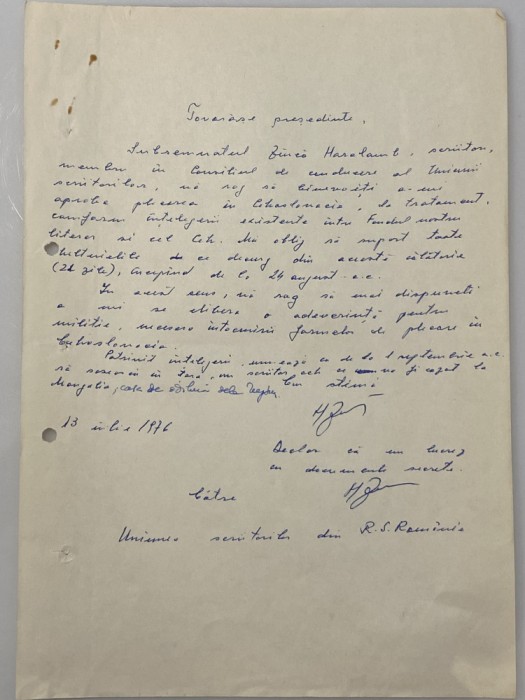 Tovarășe președinte,
Subsemnatul Zincă Haralamb, scriitor,
membru în Consiliul de conducere al Uniunii
scriitorilor, vă rog să binevoiți a-mi
aproba plecarea în Cehoslovacia, la tratament,
conform înțelegerii existente între Fondul nostru
literar și cel Ceh. Mă oblig să suport toate
cheltuielile ce decurg din această călătorie
(21 zile), începînd de la 24 august a.c.
În acest sens, vă rog să mai dispuneți
a mi se elibera o adeverință pentru
miliție, necesară întocmirii formelor de plecare în
Cehoslovacia.
Potrivit înțelegerii, urmează ca de la 1 septembrie a.c.
să sosească în țară, un scriitor ceh ce va fi cazat la
Mangalia, casa de odihnă
Cu stimă
13 iulie 1976
Declar că nu lucrez
cu documente secrete.
Către
Uniunea scriitorilor din R.S. România